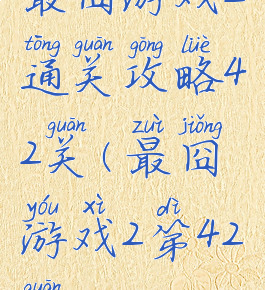 最囧游戏2
tōng guān gōng lüè
通关攻略4
guān zuì jiǒng
2关(最囧
yóu xì dì
游戏2第42
guān